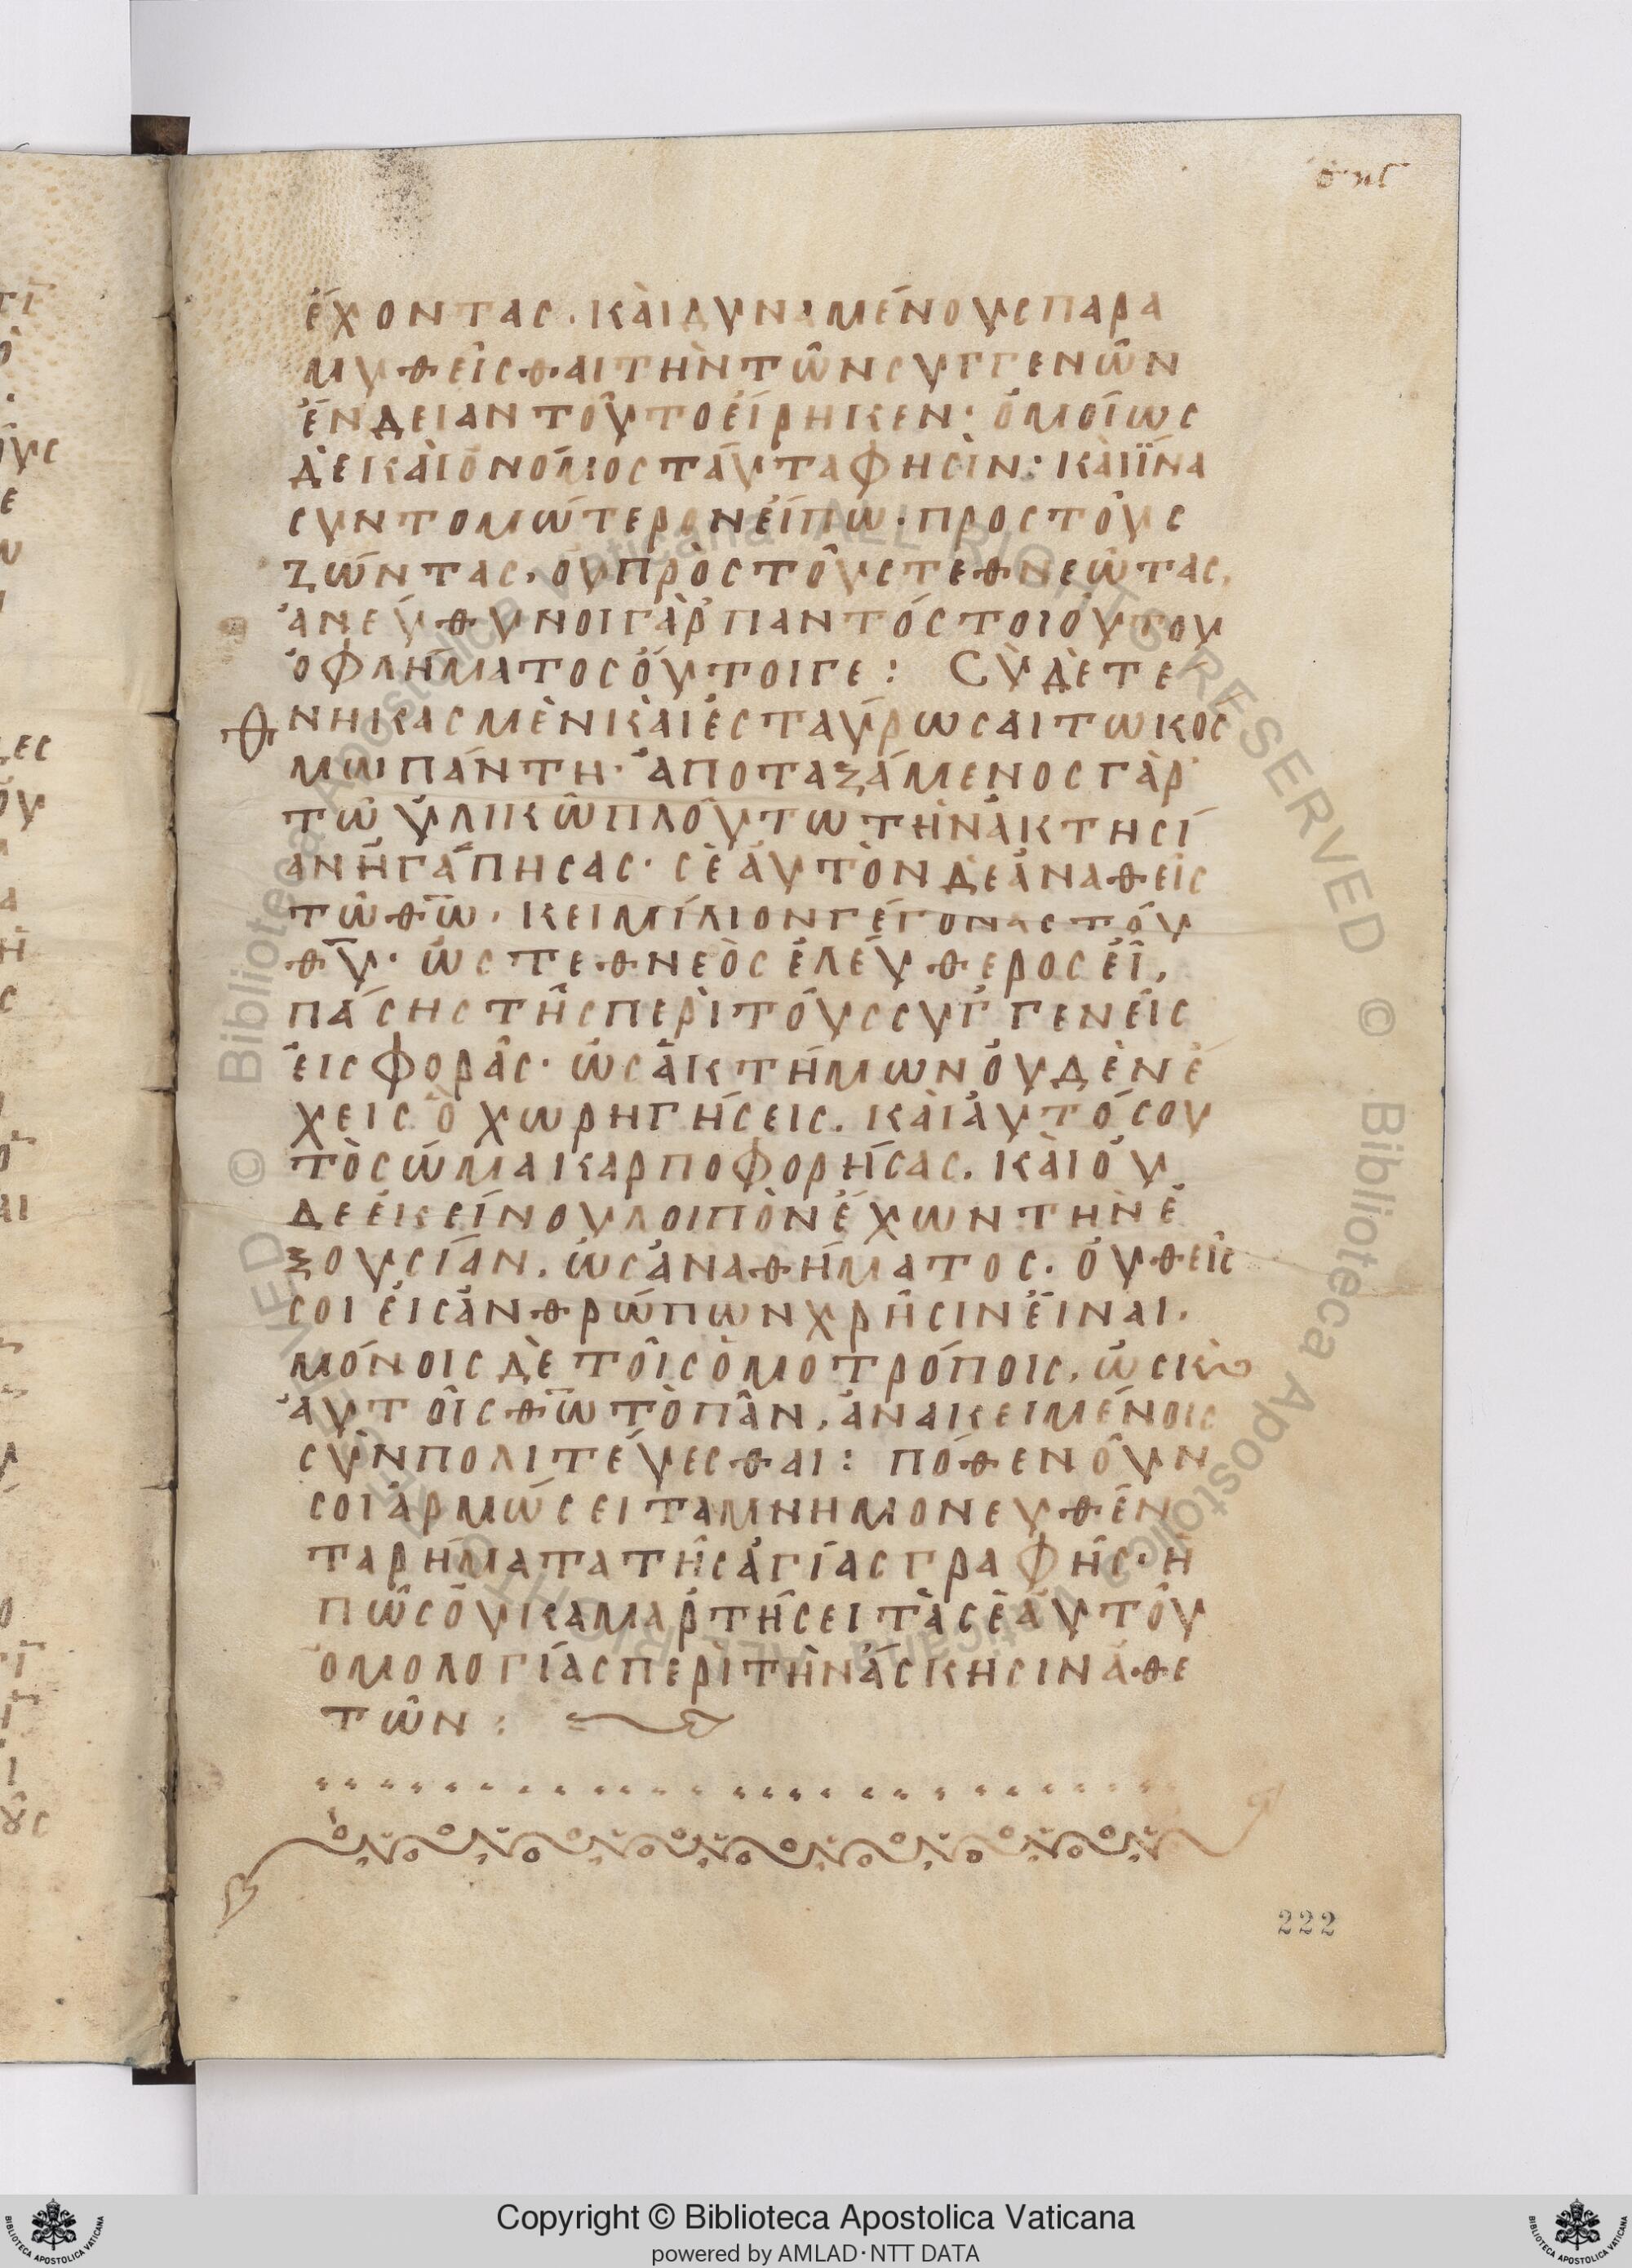 ἔχοντας. κὰι δυναμένους παρα
μυθεῖσθαι τὴν τῶν συγγενῶν
ἔνδειαν τοῦτο εἴρηκεν· ὁμοίως
δὲ κὰι ὁ νόμος τάυτα φησὶν: κὰι ἵ̈να
συντομώτερον εἴπω· προς τοὺς
ζώντας, οὐ πρὸς τοὺς τεθνεῶτας,
ἀνεύθυνοι γὰρ παντός τοιούτου
ὀφλήματος οὗτοι γε: Σὺ δὲ τέ
θνηκας μὲν κὰι ἐσταύρωσαι τω κοσ
μω πάντη· ἀποταξάμενος γὰρ
τῶ ὑλικῶ πλούτω τὴν ἀκτησί
αν ἠγάπησας· σὲ ἀυτὸν δὲ ἀναθεὶς
τῶ θ̅ω̅, κειμίλιον γέγονας τοῦ
θ̅υ̅· ὡς τεθνεὸς ἐλεύθερος εἶ,
πάσης τῆς περὶ τοὺς συγγενεῖς
ἐισφορᾶς· ὡς ἀκτήμων ὀυδὲν ἔ
χεις ὃ χωρηγήσεις. κὰι ἀυτό σου
τὸ σώμα καρποφορήσας, κὰι ὀυ
δε ἐκείνου λοιπὸν ἔχων τὴν ἐ
ξουσίαν, ὡς ἀναθήματος. ὀυ θεῖς
σοι ἐις ἀνθρώπων χρῆσιν ἐῖναι,
μόνοις δὲ τοῖς ὁμοτρόποις, ὡς κὰι
ἀυτοῖς θ̅ω̅ τὸ πᾶν, ἀνακειμένοις
σὺν πολιτεύεσθαι: πόθεν οὖν
σοι ἁρμώσει τα μνημονευθέν
τα ρήματα τῆς ἁγίας γραφῆς· ἢ
πῶς ὀυκ αμαρτήσει τὰς σὲ ἀυτοῦ
ὁμολογίας περὶ τὴν ἄσκησιν ἀθε
τῶν:
222
Copyright © Biblioteca Apostolica Vaticana
powered by AMLAD·NTT DATA